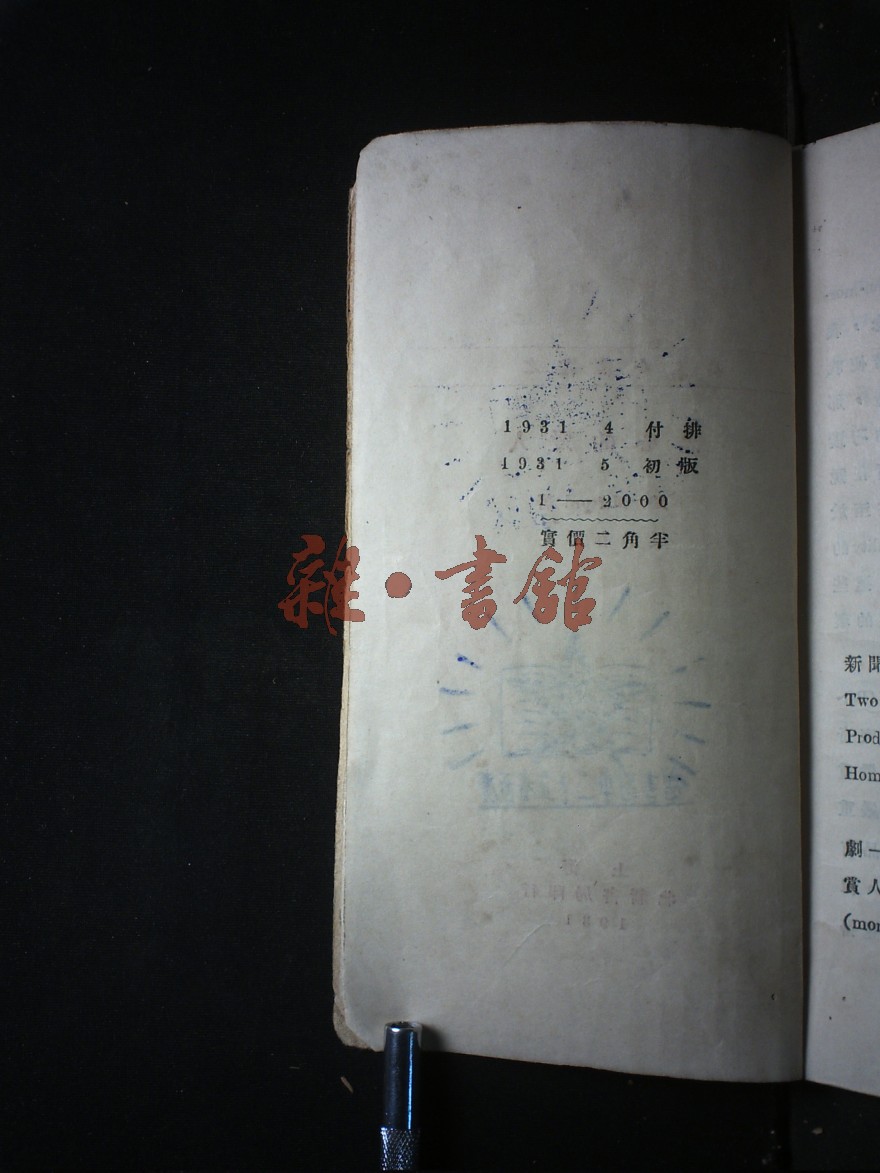 1931 4 付排
1931 5 初版
1——2000
實價二角半
雜·書館
新聞
Two
Prod
Hom
劇一
賞人
(mor